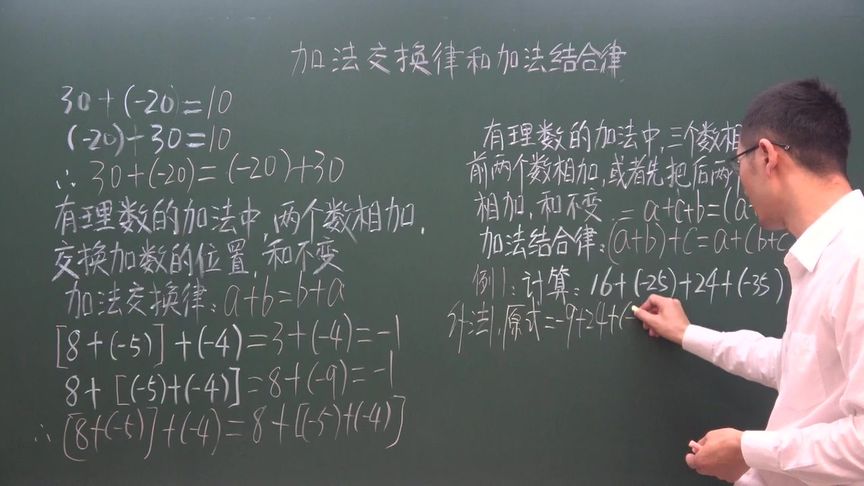 加法交换律和加法结合律
30+(-20)=10
(-20)+30=10
∴ 30+(-20)=(-20)+30
有理数的加法中,两个数相加,
交换加数的位置,和不变
加法交换律:a+b=b+a
[8+(-5)]+(-4)=3+(-4)=-1
8+[(-5)+(-4)]=8+(-9)=-1
∴[8+(-5)]+(-4)=8+[(-5)+(-4)]
有理数的加法中,三个数相
前两个数相加,或者先把后两个
相加,和不变. = a+c+b=(a
加法结合律:(a+b)+c=a+(b+c
例1:计算:16+(-25)+24+(-35)
法1,原式=-9+24+(-